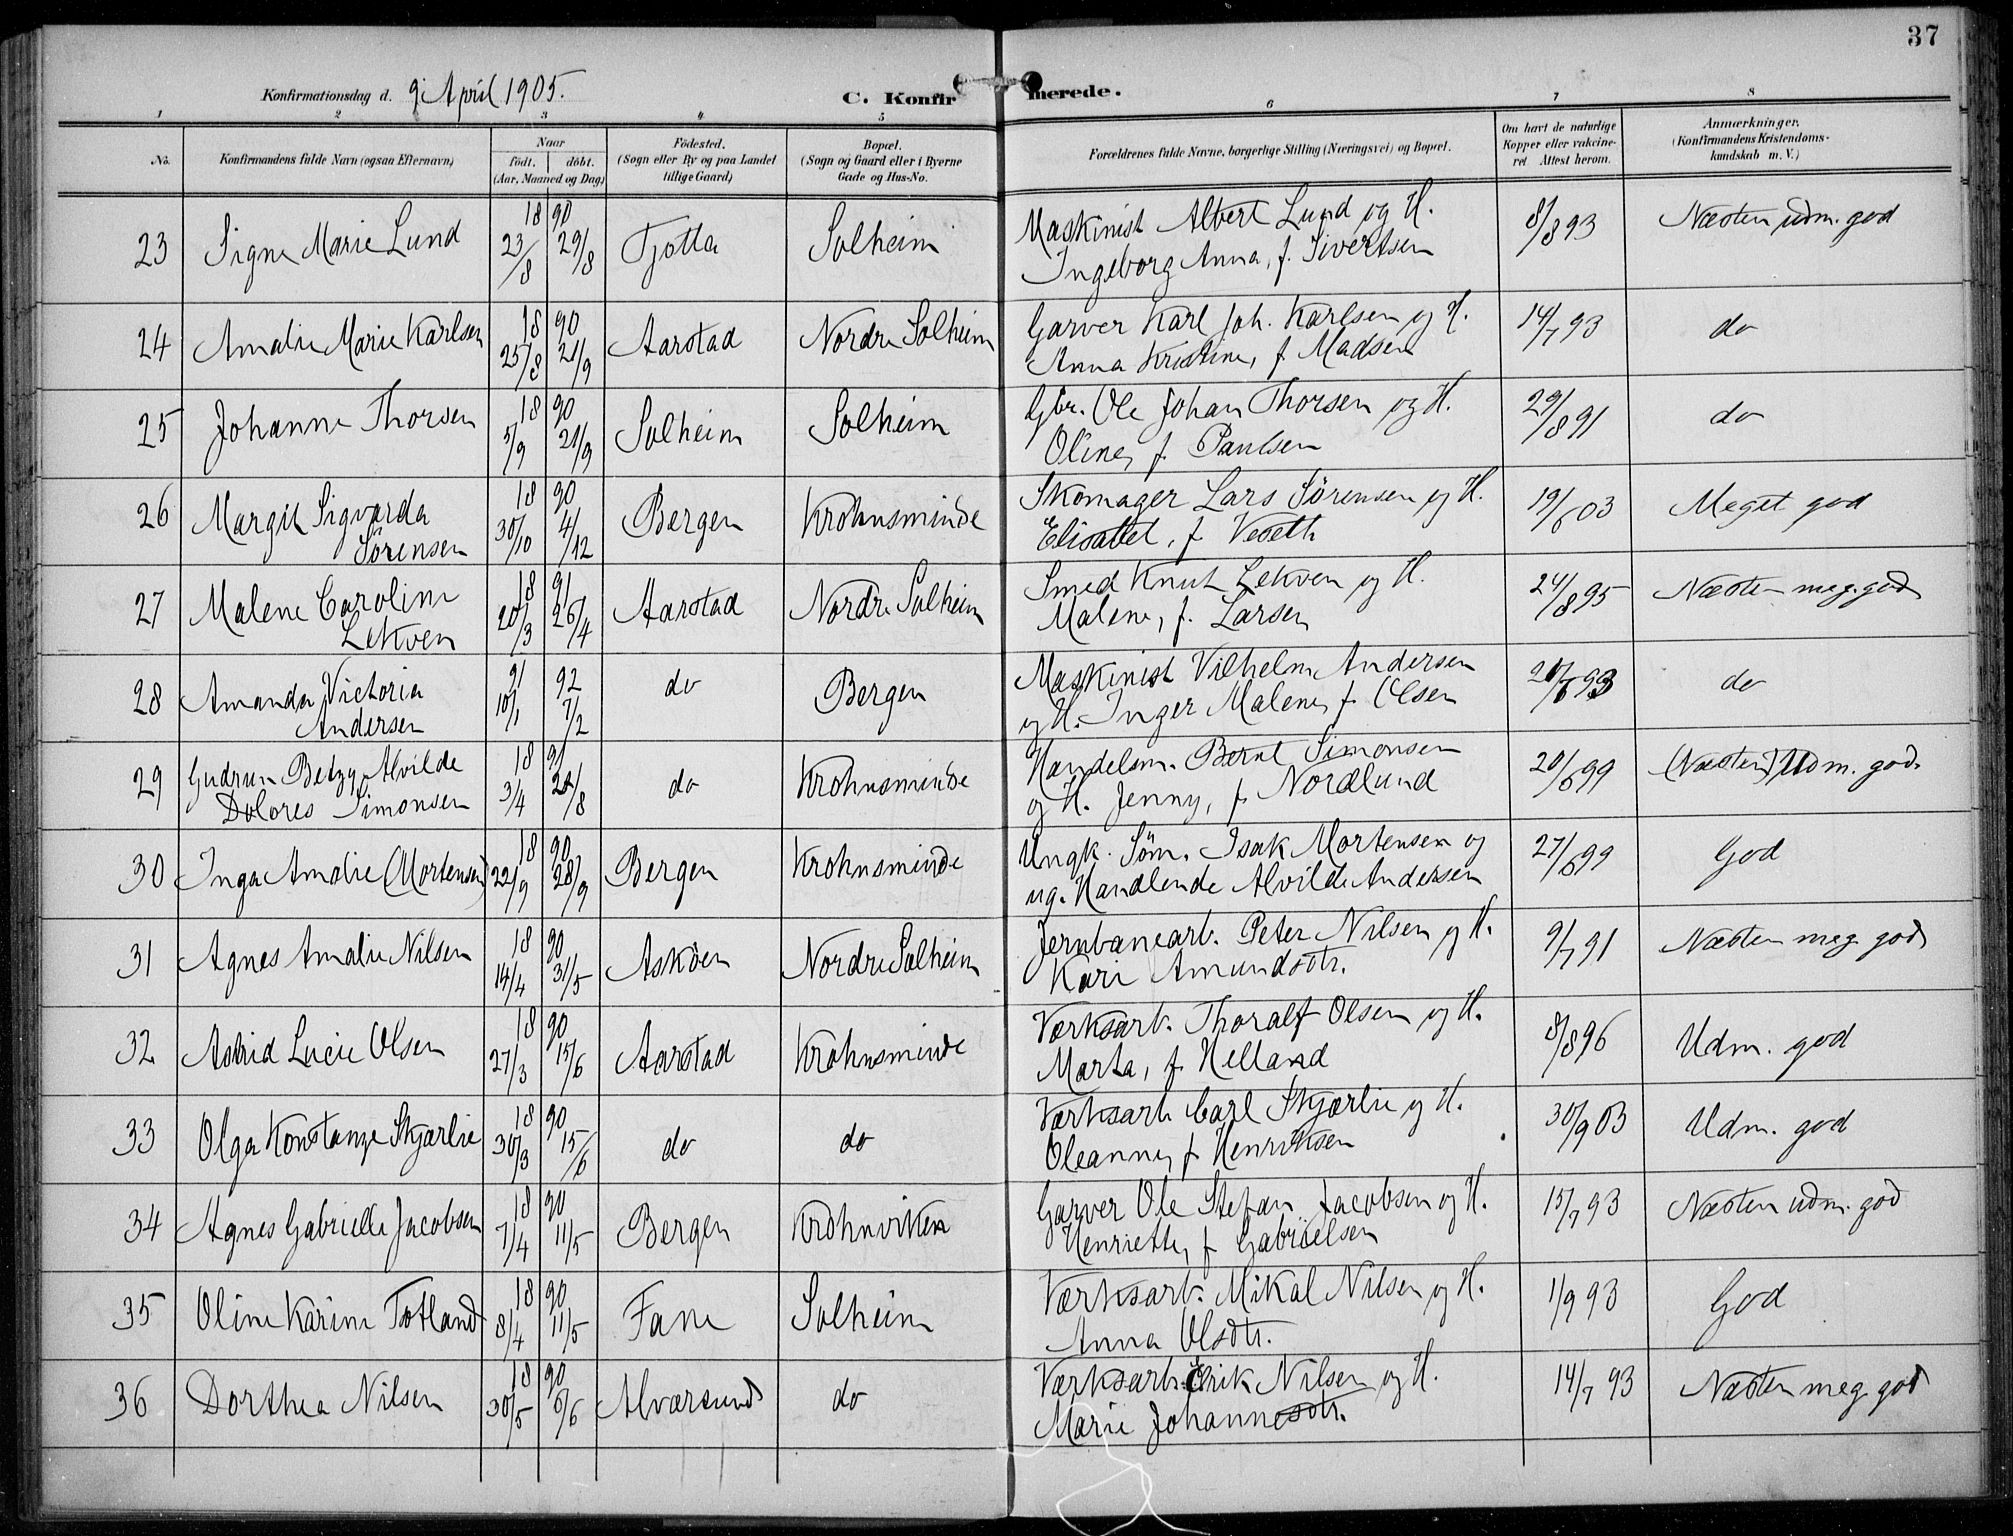 37
Konfirmationsdag d. 9. April 1905.
C. Konfirmerede.
1 2 3 4 5 6 7 8
No.
Konfirmandens fulde Navn (ogsaa Efternavn)
Naar
födt. döbt.
(Aar, Maaned og Dag)
Födested.
(Sogn eller By og paa Landet
tillige Gaard)
Bopæl.
(Sogn og Gaard eller i Byerne
Gade og Hus-No.
Forældrenes fulde Navne, borgerlige Stilling (Næringsvei) og Bopæl.
Om havt de naturlige
Kopper eller vakcine-
ret Attest herom.
Anmærkninger.
(Konfirmandens Kristendoms-
kundskab m. V.)
23 Signe Marie Lund 18 90 23/8 29/8 Tjotta Solheim Maskinist Albert Lund og H.
Ingeborg Anna, f. Sivertsen 8/8 93 Næsten udm. god
24 Amalie Marie Karlsen 18 90 25/8 21/9 Aarstad Nordre Solheim Garver Karl Joh. Karlsen og H.
Anna Kristine, f. Madsen 14/7 93 do
25 Johanne Thorsen 18 90 5/9 21/9 Solheim Solheim Gbr. Ole Johan Thorsen og H.
Oline, f. Paulsen 29/8 91 do
26 Margit Sigvarda
Sörensen 18 90 30/10 4/12 Bergen Krohnsminde Skomager Lars Sörensen og H.
Elisabet, f. Veseth 19/6 03 Meget god
27 Malene Caroline
Lekven 18 91 20/3 26/4 Aarstad Nordre Solheim Smed Knut Lekven og H.
Malene, f. Larsen 24/8 95 Næsten meg. god
28 Amanda Victoria
Andersen 91 92 10/1 7/2 do Bergen Maskinist Vilhelm Andersen
og H. Inger Malene, f. Olsen 93 do
29 Gudrun Betzy Alvilde
Dolores Simonsen 18 91 3/4 /8 do Krohnsminde Handelsm. Bernt Simonsen
og H. Jenny, f. Nordlund 20/6 99 (Næsten) Udm. god
30 Inga Amalie (Mortensen) 18 90 22/9 28/9 Bergen Krohnsminde Ungk. Söm. Isak Mortensen og
ug. Handlende Alvilde Andersen 27/6 99 God
31 Agnes Amalie Nilsen 18 90 14/4 31/5 Asköen Nordre Solheim Jernbanearb. Peter Nilsen og H.
Kari Amundsdtr. 9/7 91 Næsten meg. god
32 Astrid Lucie Olsen 18 90 27/3 15/6 Aarstad Krohnsminde Værksarb. Thoralf Olsen og H.
Marta, f. Helland 8/8 96 Udm. god
33 Olga Konstanze Skjærlie 18 90 30/3 15/6 do do Værksarb. Carl Skjærlie og H.
Oleanne, f. Henriksen 30/9 03 Udm. god
34 Agnes Gabrielle Jacobsen 18 90 7/4 11/5 Bergen Krohnviken Garver Ole Stefan Jacobsen og H.
Henriette, f. Gabrielsen 15/7 93 Næsten udm. god
35 Oline Karine Totland 18 90 8/4 11/5 Fane Solheim Værksarb. Mikal Nilsen og H.
Anna Olsdtr. 1/9 93 God
36 Dorthea Nilsen 18 90 30/5 6/6 Alværsund do Værksarb. Erik Nilsen og H.
Marie Johannesdtr. 14/7 93 Næsten meg. god